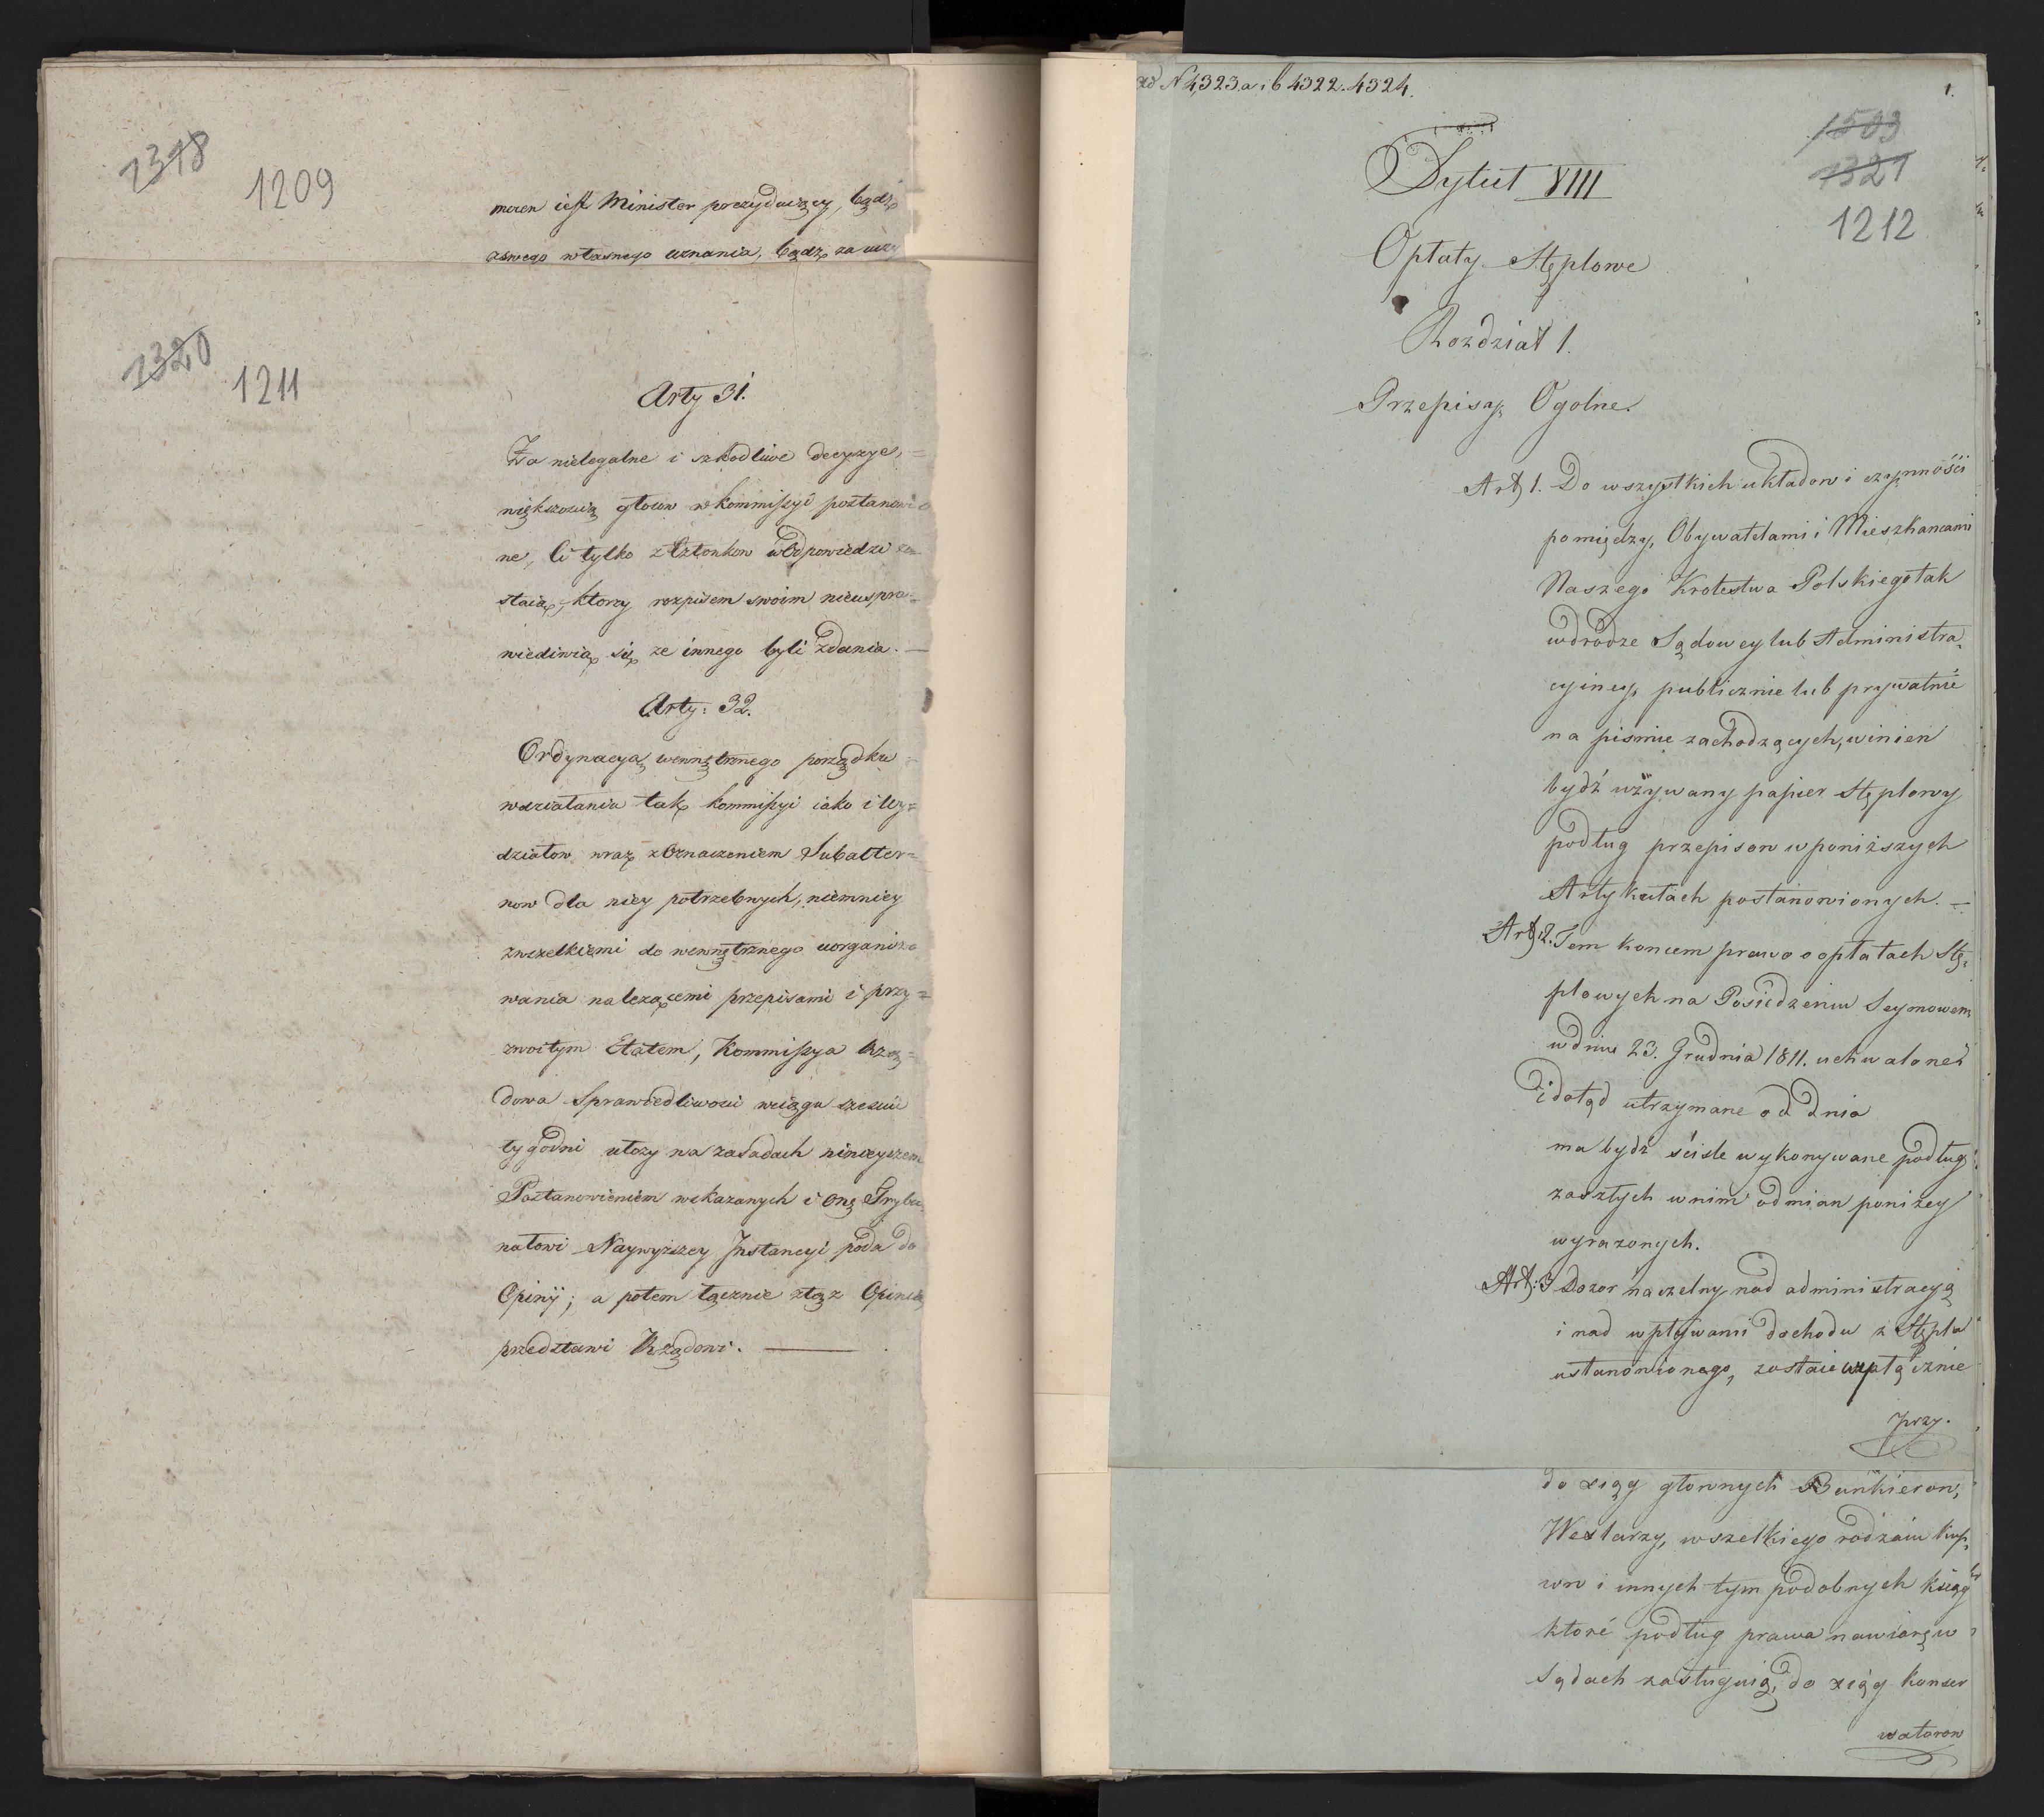 1318
1209
mocen iest Minister prezyduiący, bądź
zswego własnego uznania, bądz za
1320
1211
Arty 31.
Za nielegalne i szkodliwe decyzye,
większoscią głosow w kommissyi postanowio
ne, li tylko z Członkow w Odpowiedzi zo=
staią, ktorzy rozpisem swoim nieuspra=
wiedliwią się ze innego byli zdania. —
Arty: 32.
Ordynacyą wewnętrznego porządku
wdziałania tak kommissyi iako i Wy=
działow, wraz z Oznaczeniem Subalter=
now dla niey potrzebnych, niemniey
zwszelkiemi do wewnętrznego uorganizo
wania należącemi przepisami i przy=
zwoitym Etatem, Kommissya Rzą=
dowa Sprawiedliwosci wciągu szesciu
tygodni ułozy na zasadach ninieyszem
Postanowieniem wskazanych i onę Trybu
nałowi Naywyższey Instancyi poda do
Opinij; a potem łącznie z tąz Opinią
przedstawi Rządowi. —
ad N 4323.a i b 4322. 4324.
1.
1503
1321
1212
Tytuł VIII
Opłaty Stęplowe
Rozdział 1.
Przepisy Ogolne.
Art 1. Do wszystkich układow i czynności
pomiędzy, Obywatelami i Mieszkancami
Naszego Krolestwa Polskiego tak
wdrodze Sądowey lub Administra,
cyiney, publicznie lub prywatnie
na pismie zachodzących, winien
bydź używany papier Stęplowy
podług przepisow w poniższych
Artykułach postanowionych. —
Art: 2. Tem koncem prawo o opłatach Stę,
plowych na Posiedzeniu Seymowem
w dniu 23. Grudnia 1811. uchwalone
i dotąd utrzymane od dnia
ma bydź ściśle wykonywane podług
zaszłych w nim odmian poniżey
wyrażonych.
Art: 3 Dozor naczelny nad administracyą
i nad wpływami dochodu z Stępla
ustanowionego, zostaie wyłącznie
przy.
do xiąg głownych Bankierow,
Wexlarzy, wszelkiego rodzaiu kup,
cow i innych tym podobnych ksiąg
ktoré podług prawa na wiarę w
Sądach zasługuią, do xiąg konser
watorow